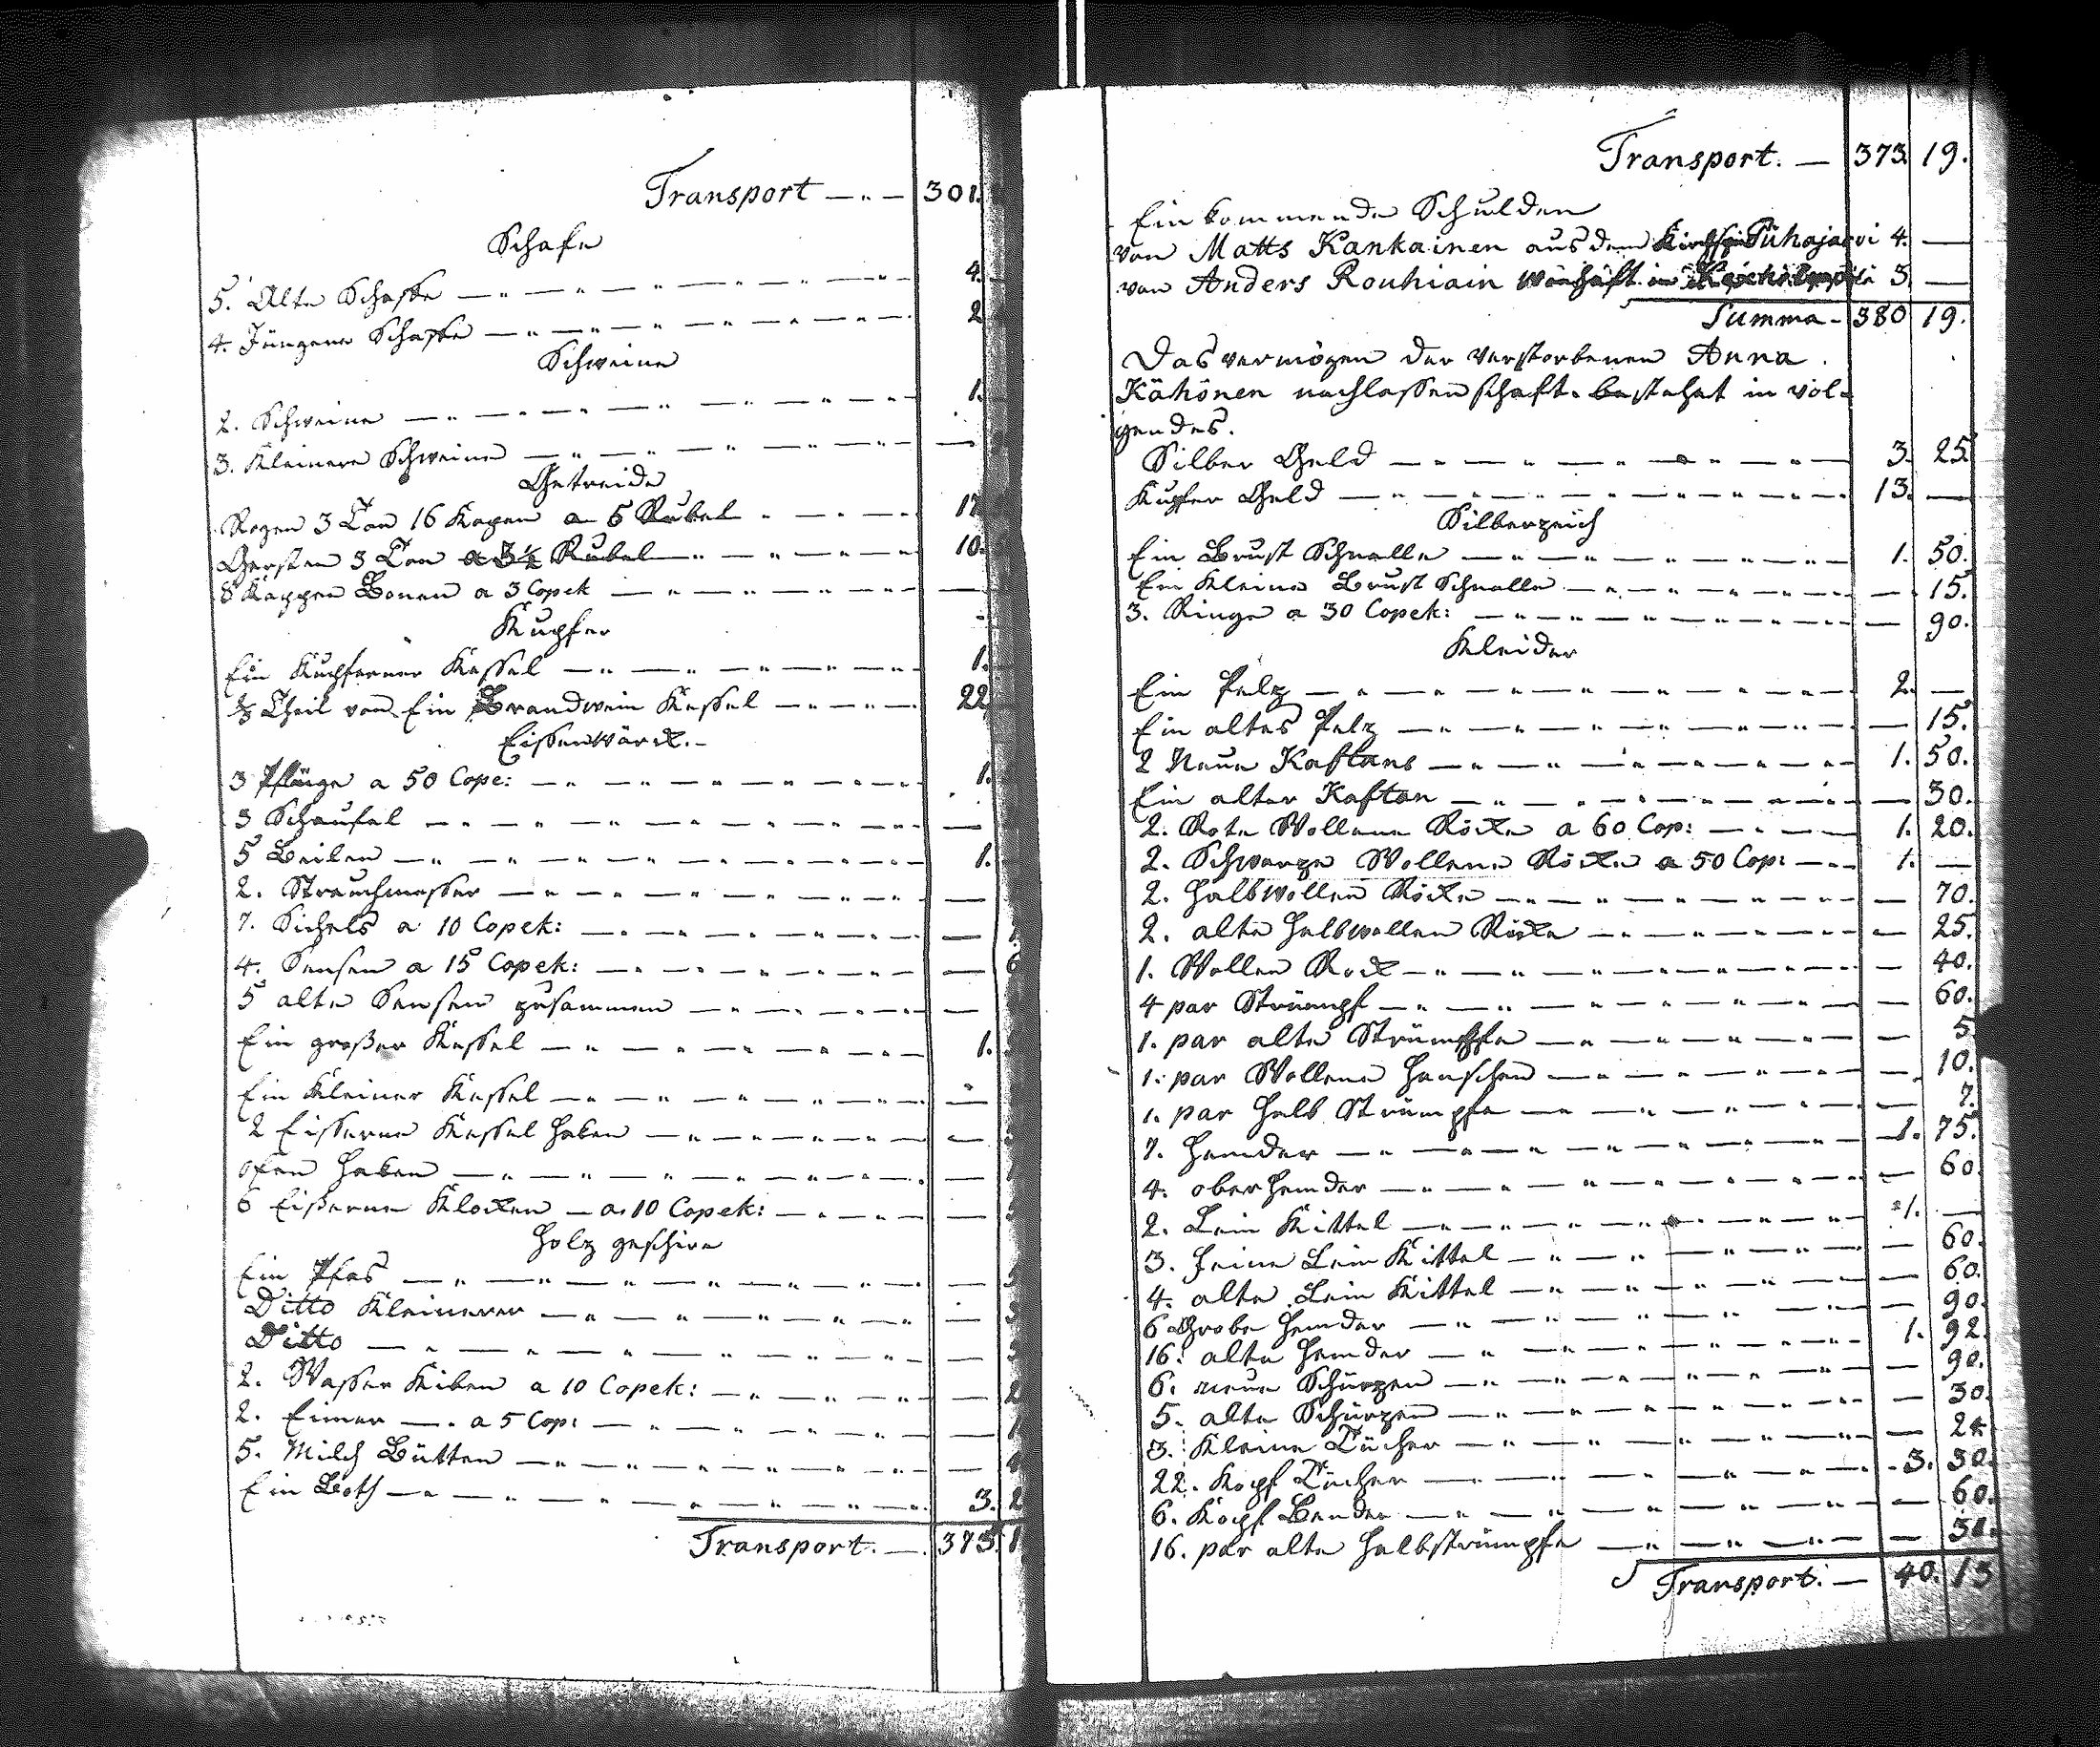 Transport — 301.
Schafe
5. Alte Schaffe — 4.
4. Jüngere Schaffe — 2
Schweine
2. Schweine — 1.
3. Kleinere Schweine —
Getreide
Rogen 3 Ton 16 Kapen a 5 Rubel — 17
Gersten 3 Ton a 3½ Rubel — 10.
8 Kappen Bonen a 3 Copek —
Kupfer
Ein Kupferner Kessel — 1.
Theil von Ein Brandwein Kessel — 22
Eissenwärck.
3 Pflüge a 50 Cope: — 1.
3 Schaufel —
5 Beilen — 1.
2. Strauchmesser —
7. Sichels a 10 Copek: —
4. Sensen a 15 Copek: — 6
5 alte Sensen zusammen —
Ein großer Kessel — 1.
Ein Kleiner Kessel —
2 Eisserne Kessel Haken —
ofen Haken —
6 Eißerne Klocken — a 10 Copek: —
Holz geschire
Ein Pfas —
Ditto Kleinerer —
Ditto —
2. Wasser Kiben a 10 Copek: — 2
2. Eimer — a 5 Cop: — 1
5. Milch Bütten —
Ein Both — 3. 2
Transport. — 373. 1
Transport. — 373. 19.
Ein kommende Schulden
von Matts Kankainen aus dem Kirchspiel Pühajarvi 4. —
von Anders Rouhiain 3. —
Summa - 380 19.
Das vermögen der verstorbenen Anna
Kähönen nachlassenschaft. bestehet in vol-
gendes.
Silber Geld — 3. 25.
Kupfer Geld — 13. —
Silberzeich
Ein Brust Schnalle — 1. 50.
Ein Kleine Brust Schnalle — 15.
3. Ringe a 30 Copek: — 90.
Kleider
Ein Pelz — 2. —
Ein altes Pelz — 15.
2 Neue Kaftans — 1. 50.
Ein alter Kaftan — 30.
2. Rote Wollene Röcke a 60 Cop: — 1. 20.
2. Schwarze Wollene Röcke a 50 Cop: — 1. —
2. Halbwollen Röcke — 70.
2. alte Halbwollen Röcke — 25.
1. Wollen Rock — 40.
4 par Strümpf — 60.
1. par alte Strümpffe — 5
1. par Wollene Hanschen — 10.
1. par Halb Strümpfe — 7.
7. Hemder — 1. 75.
4. ober Hemder — 60.
2. Lein Kittel — 1. —
3. Feine Lein Kittel — 60.
4. alte Lein Kittel — 60.
6 Grobe Hemder — 90.
16. alte Hemder — 1. 92.
6. neue Schürzen — 90.
5. alte Schürzen — 30.
3. Kleine Tücher — 24.
22. Kopf Tücher — 3. 30.
6. Kopf Bender — 60.
16. par alte Halbstrümpfe —
Transport. — 40. 13